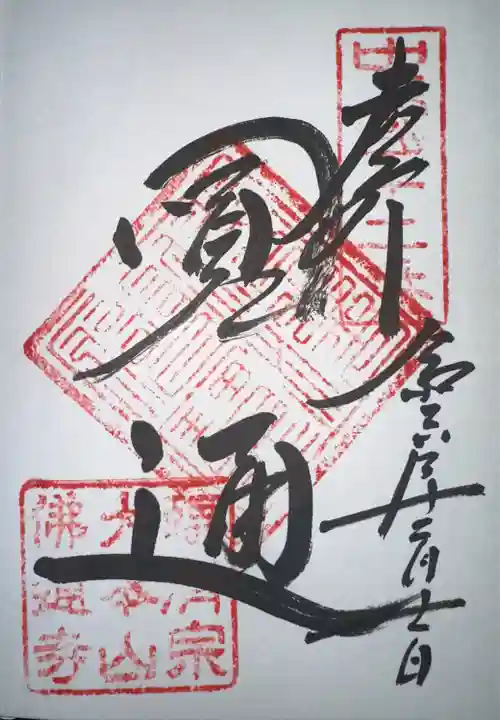 奉拝
圓通
令和六年十二月十一日
臨済宗
大本山
佛通寺